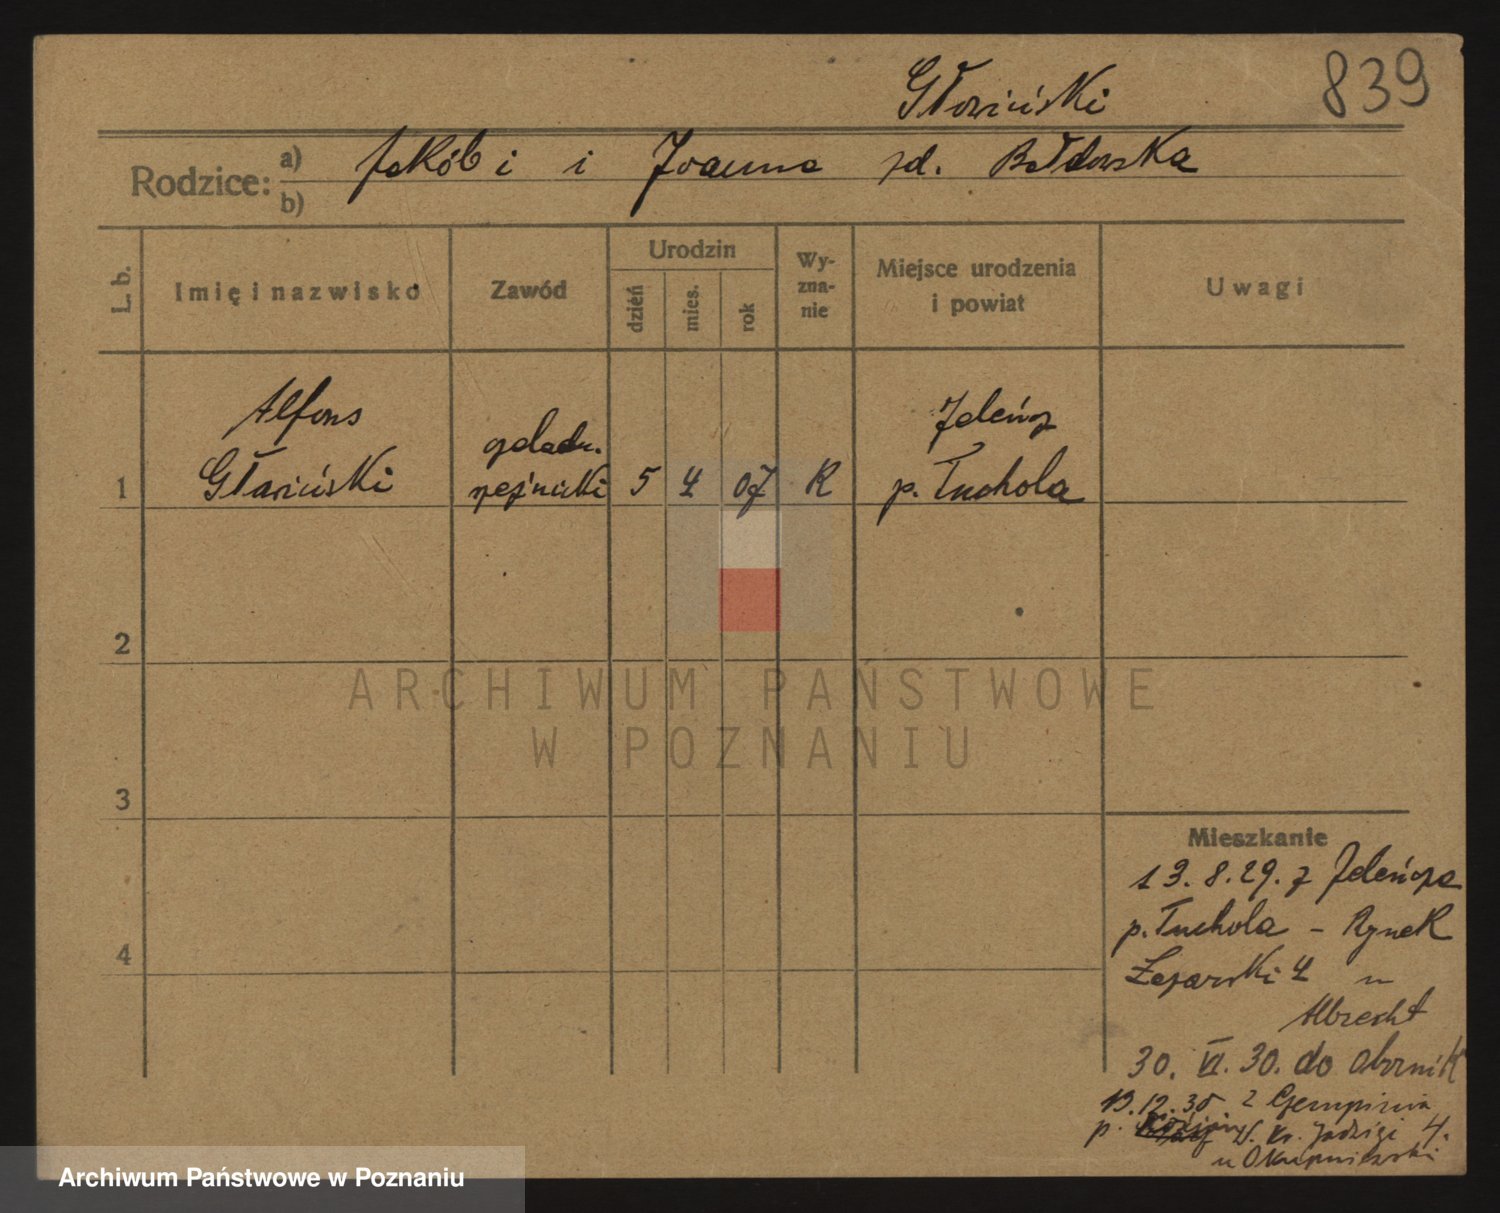 Głowiński
839
Rodzice: a) Jakób i i Joanna zd. Bałdowska
b)
L. b.
Imię i nazwisko
Zawód
Urodzin
dzień
mies.
rok
Wy-
zna-
nie
Miejsce urodzenia
i powiat
Uwagi
1
Alfons
Głowiński
czeladn.
rzeźnicki
5
4
07
K
Jeleńcz
p. Tuchola
2
3
4
Mieszkanie
13. 8. 29. z Jeleńcza
p. Tuchola - Rynek
Łazarski 4 u
Albrecht
30. VI. 30. do Obornik
19.12.35 z
p. Kr. Jadwigi 4.
u
ARCHIWUM PAŃSTWOWE
W POZNANIU
Archiwum Państwowe w Poznaniu